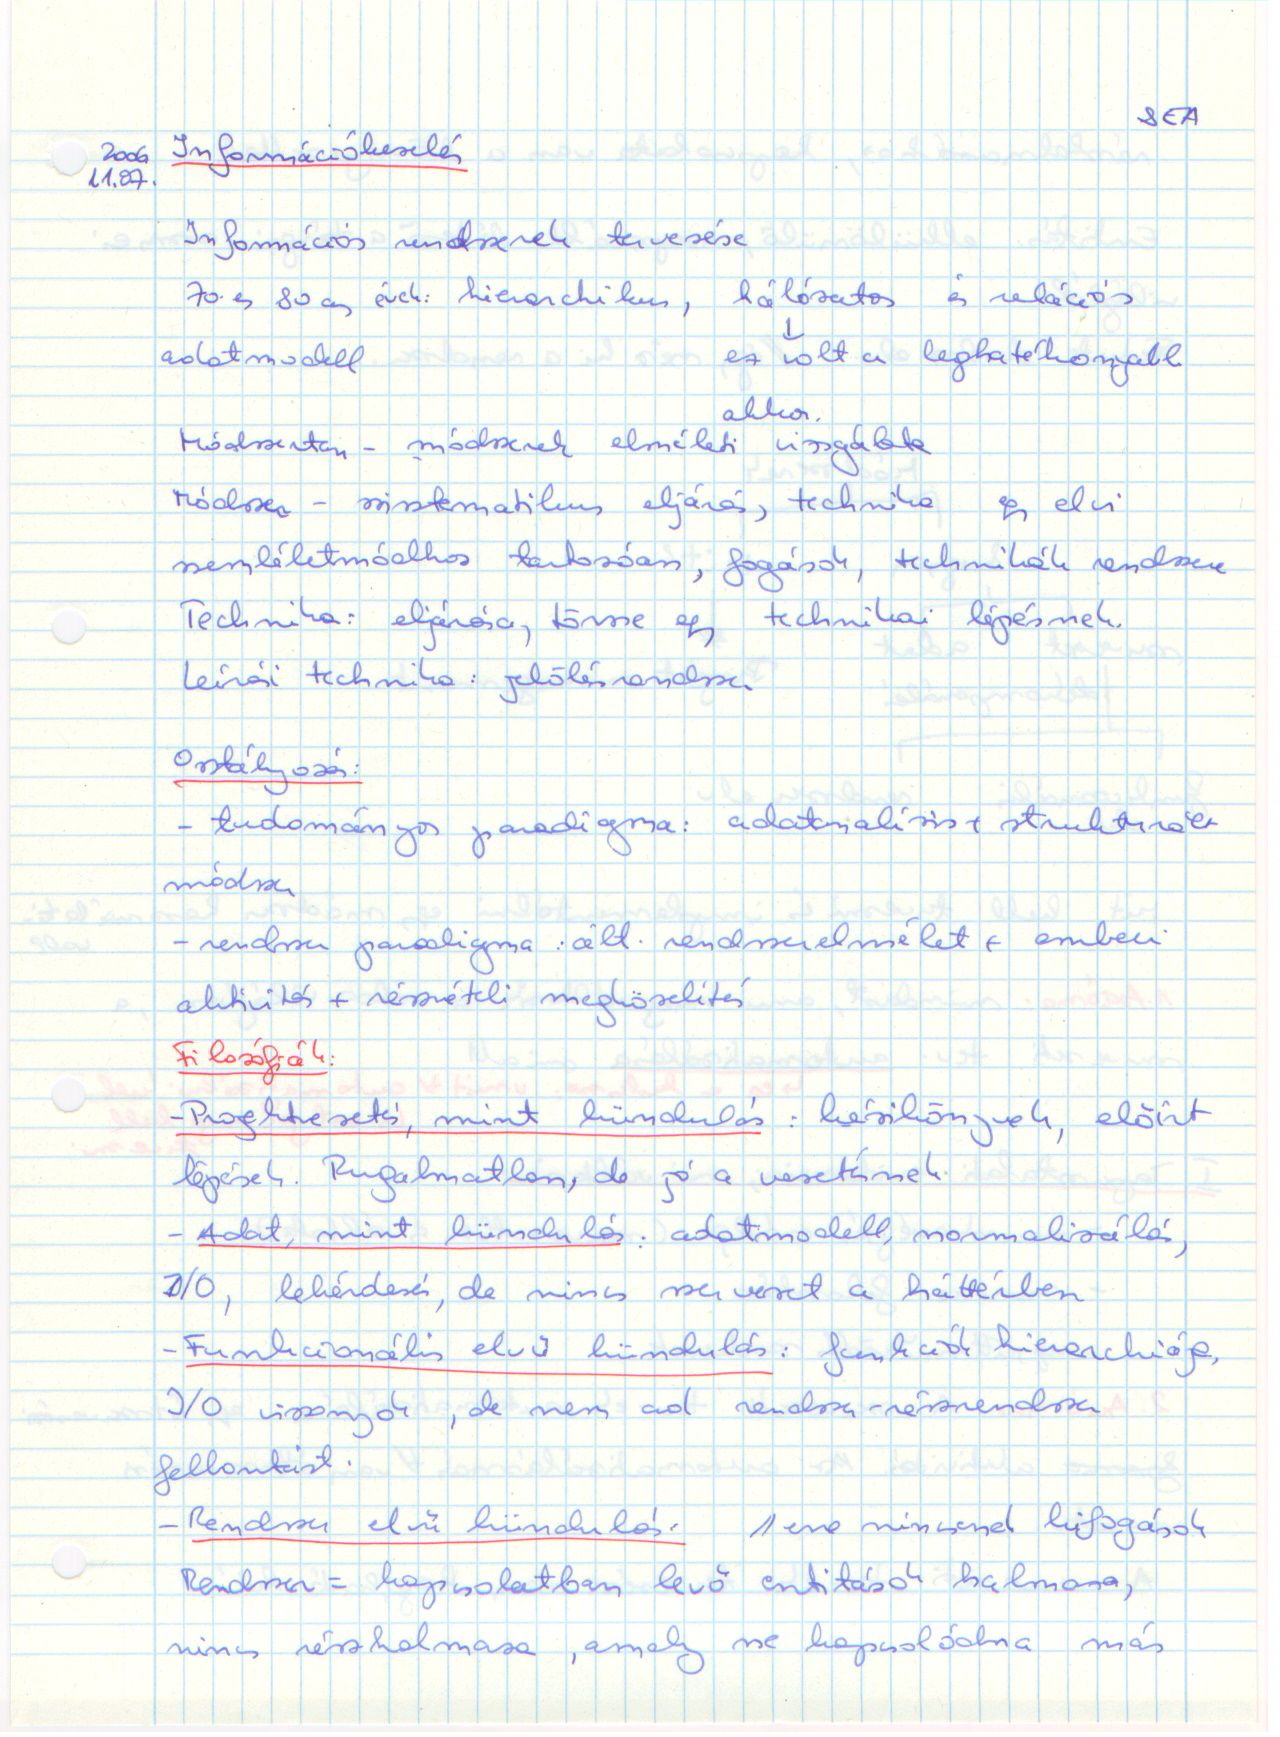 SEA
2006
11.07.
Információkezelés
Információs rendszerek tervezése
70. es 80 as évek: hierarchikus, hálózatos és relációs
adatmodell ez volt a leghatékonyabb
akkor.
Módszertan - módszerek elméleti vizsgálata
Módszer - szisztematikus eljárás, technika egy elvi
szemléletmódhoz tartozóan, fogások, technikák rendszere
Technika: eljárása, törzse egy technikai lépésnek.
Leírási technika: jelölésrendszer
Osztályozás:
- tudományos paradigma: adatanalízis + strukturált
módszer
- rendszer paradigma: ált. rendszerelmélet + emberi
aktivitás + részvételi megközelítés
Filozófiák:
- vezetés, mint kiindulás: kézikönyvek, előírt
lépések. Rugalmatlan, de jó a vezetésnek.
- Adat, mint kiindulás: adatmodell, normalizálás,
I/O, lekérdezés, de nincs szervezet a háttérben
- Funkcionális elvű kiindulás: funkciók hierarchiája,
I/O viszonyok, de nem ad rendszer-részrendszer
felbontást.
- Rendszer elvű kiindulás. // erre nincsenek kifogások
Rendszer = kapcsolatban levő entitások halmaza,
nincs részhalmaza, amely ne kapcsolódna más